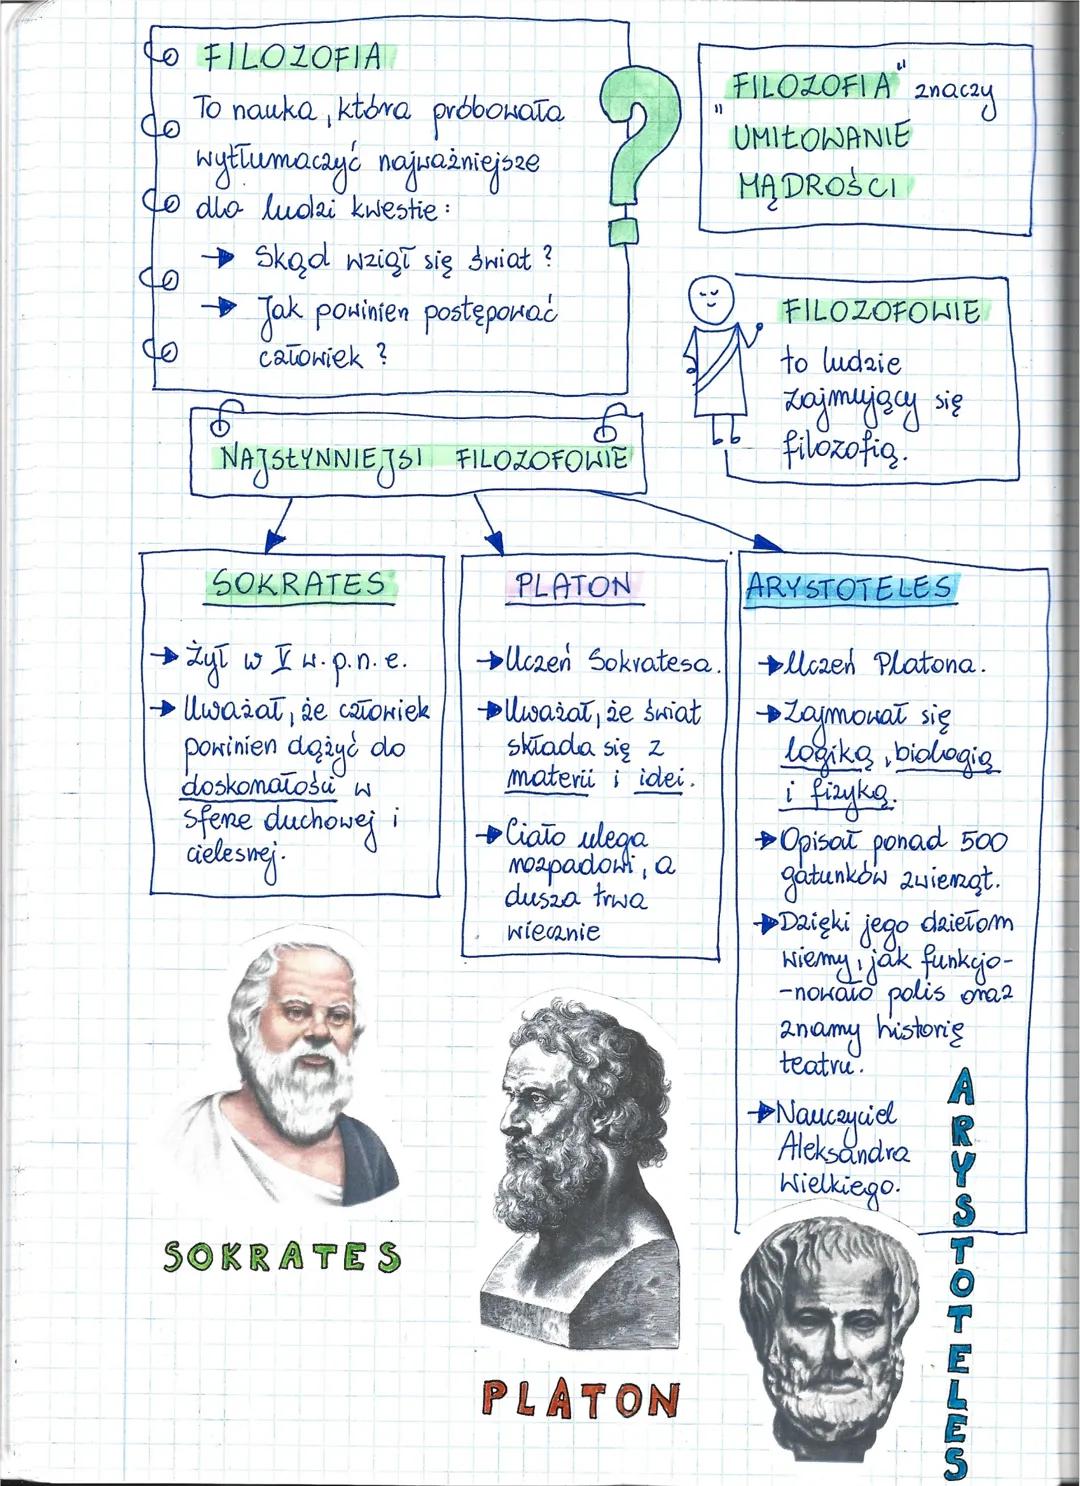 FILOZOFIA
To nauka, która próbowała
wytłumaczyć najważniejsze
dla ludzi kwestie:
→ Skąd wziął się świat?
→ Jak powinien postępować
człowiek?
?
„FILOZOFIA" znaczy
UMIŁOWANIE
MĄDROŚCI
FILOZOFOWIE
to ludzie
zajmujący się
filozofią.
NAJSŁYNNIEJSI FILOZOFOWIE
SOKRATES
→ Żył w V w. p.n.e.
→ Uważał, że człowiek
powinien dążyć do
doskonałości w
sferze duchowej i
cielesnej.
PLATON
→ Uczeń Sokratesa.
→ Uważał, że świat
składa się z
materii i idei.
→ Ciało ulega
rozpadowi, a
dusza trwa
wiecznie
ARYSTOTELES
→ Uczeń Platona.
→ Zajmował się
logiką, biologią
i fizyką.
→ Opisał ponad 500
gatunków zwierząt.
→ Dzięki jego dziełom
wiemy, jak funkcjo-
-nowało polis oraz
znamy historię
teatru.
→ Nauczyciel
Aleksandra
Wielkiego.
SOKRATES
PLATON
ARYSTOTELES